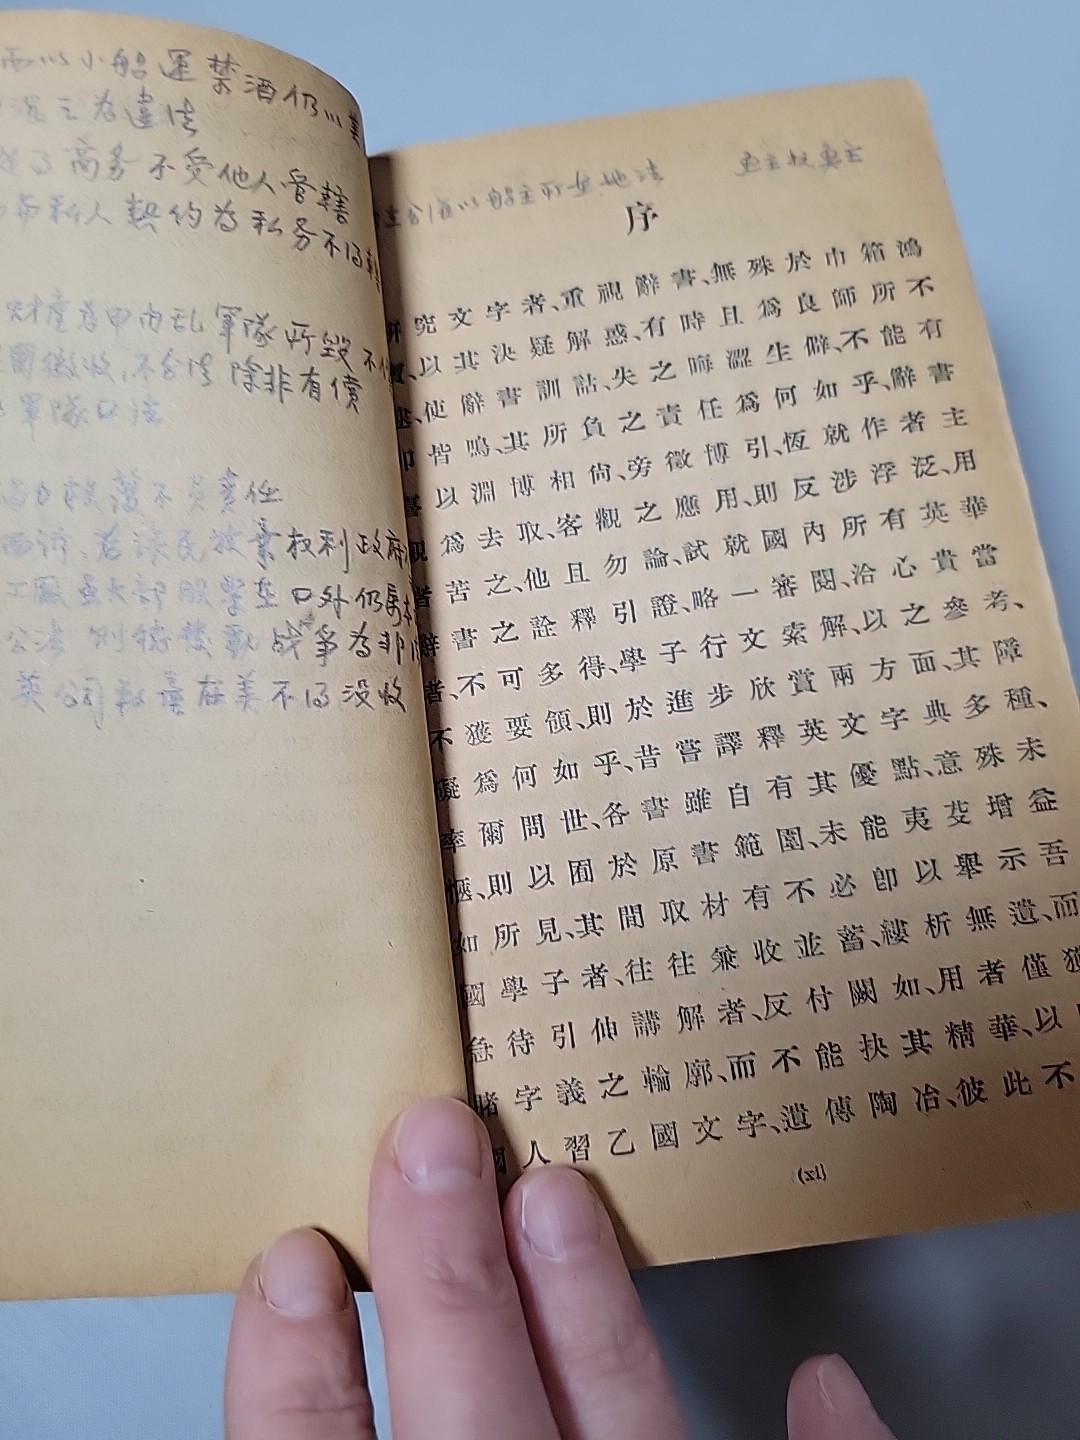 而以小船運禁酒仍以美
為違法
商务不受他人管轄
私人契約為私务不
財產為甲内乱軍隊所毀不
徵收,不合法除非有償
軍隊
不負責任
權利政府
口外仍
公法
战争為非
英公司 在美不 没收
以船主所在地法
序
研究文字者、重視辭書、無殊於巾箱鴻
寶、以其決疑解惑、有時且爲良師所不
逮、使辭書訓詁、失之晦澀生僻、不能有
叩皆鳴、其所負之責任爲何如乎、辭書
以淵博相尙、旁徵博引、恆就作者主
觀爲去取、客觀之應用、則反涉浮泛、用
者苦之、他且勿論、試就國內所有英華
辭書之詮釋引證、略一審閱、洽心貴當
者、不可多得、學子行文索解、以之參考、
不獲要領、則於進步欣賞兩方面、其障
礙爲何如乎、昔嘗譯釋英文字典多種、
率爾問世、各書雖自有其優點、意殊未
愜、則以囿於原書範圍、未能夷芟增益
如所見、其間取材有不必卽以舉示吾
國學子者、往往兼收並蓄、縷析無遺、而
急待引伸講解者、反付闕如、用者僅獲
睹字義之輪廓、而不能抉其精華、以
國人習乙國文字、遺傳陶冶、彼此不
(xi)